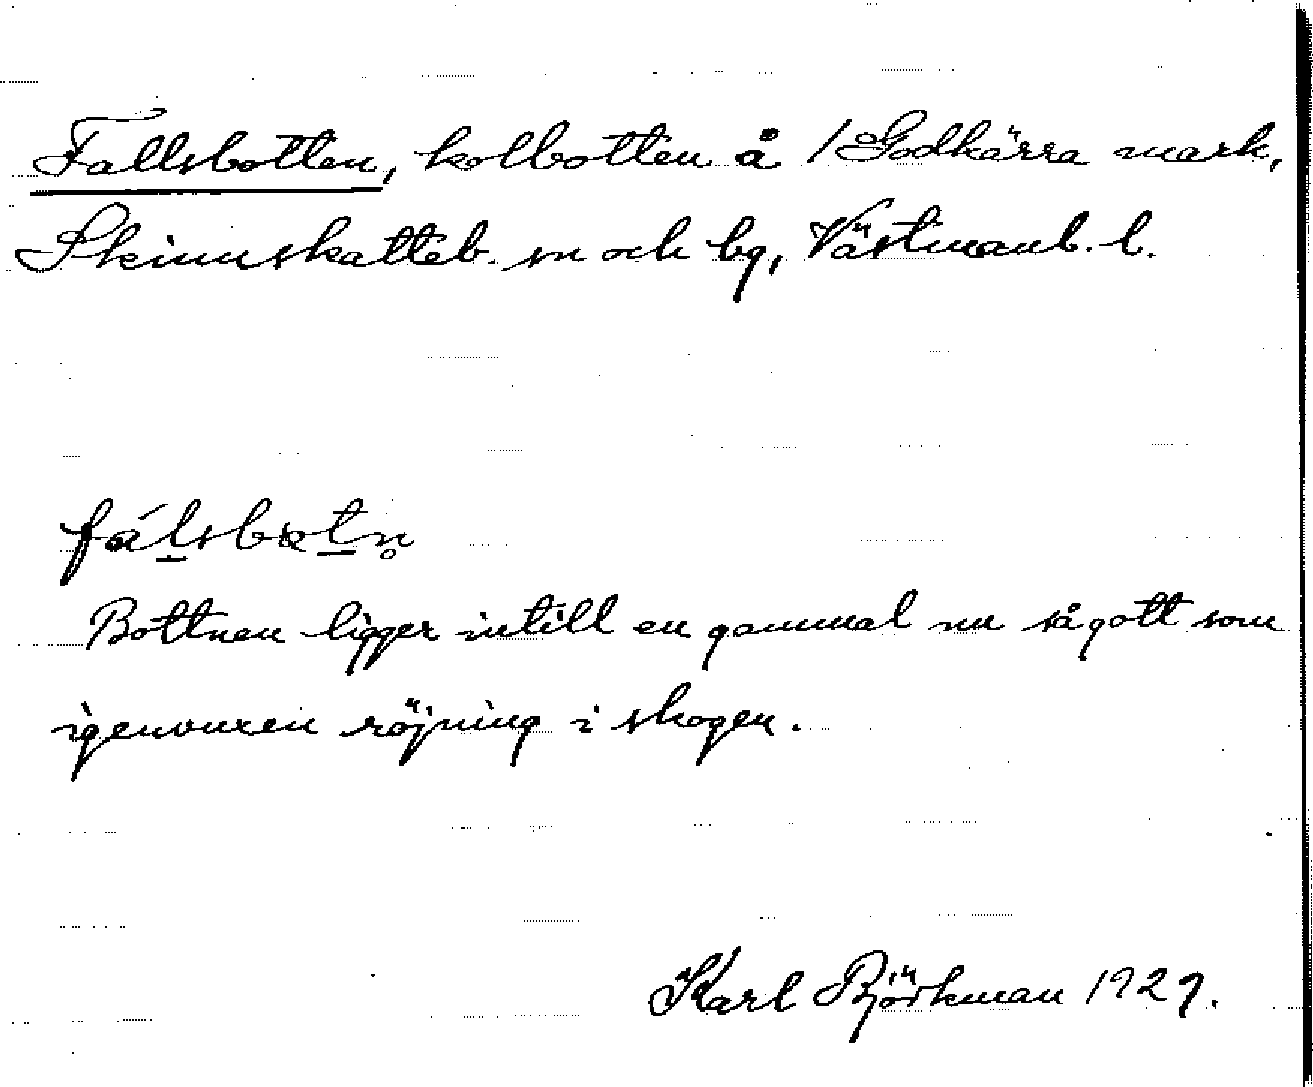 Fallsbotten, kolbotten å /Godkärra mark,
Skinnskatteb. sn och bg, Västmanl. l.
fálsbɷtn̥
Bottnen ligger intill en gammal nu sågott som
igenvuxen röjning i skogen.
Karl Björkman 1929.